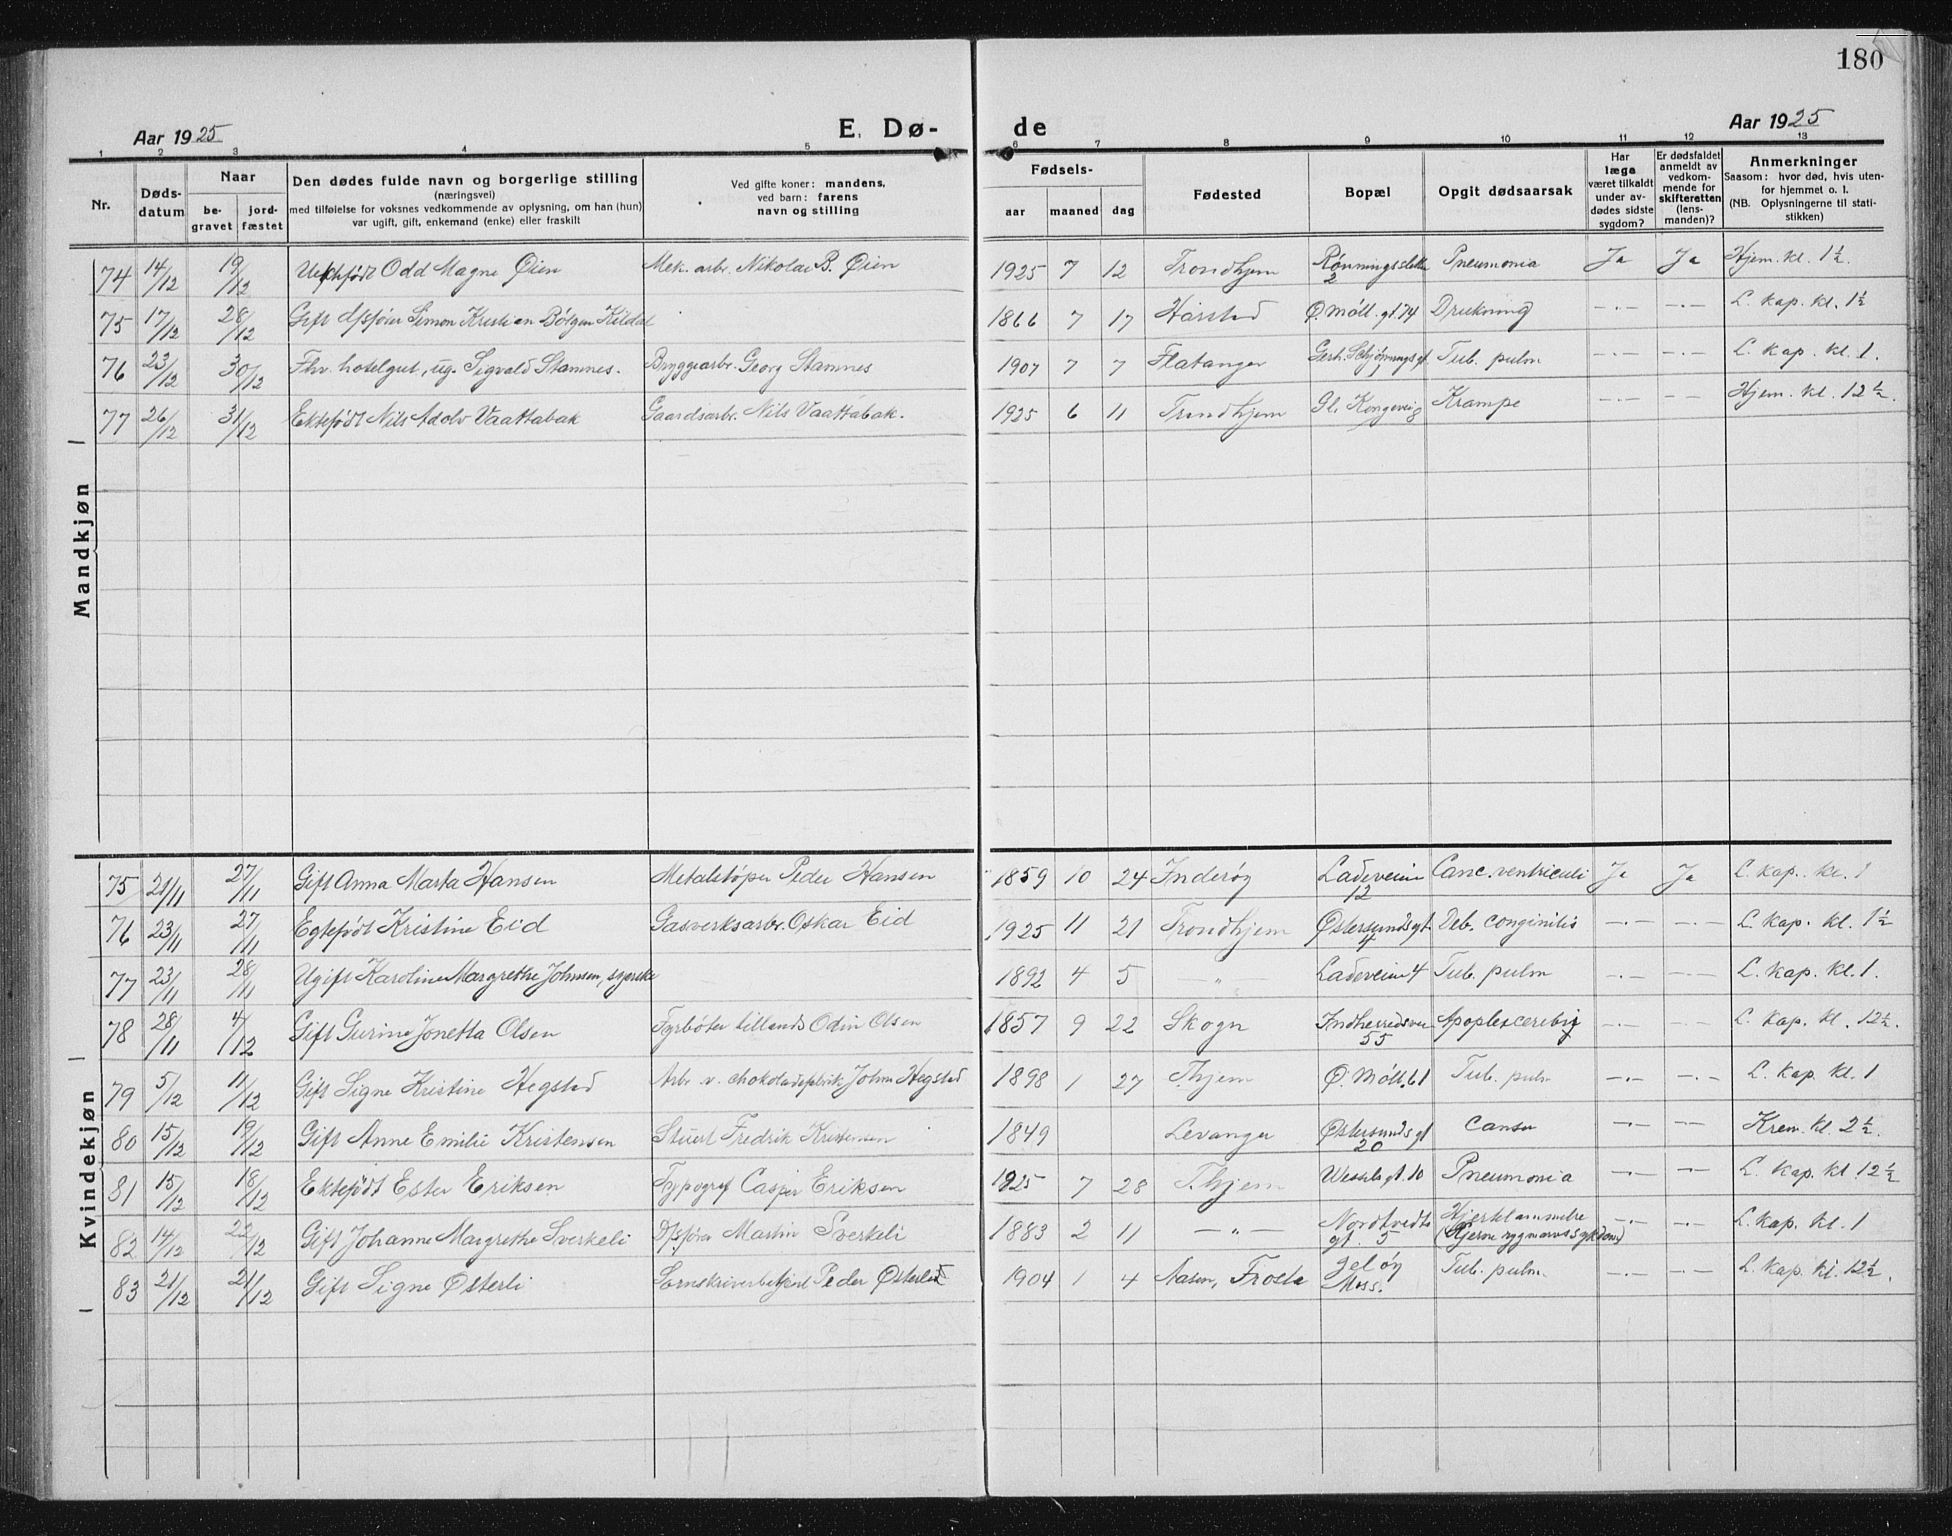 180
Aar 1925
E. Dø-
de
Aar 1925
1 2 3 4 5 6 7 8 9 10 11 12 13
Nr.
Døds-
datum
Naar
be-
gravet
jord-
fæstet
Den dødes fulde navn og borgerlige stilling
(næringsvei)
med tilføielse for voksnes vedkommende av oplysning, om han (hun)
var ugift, gift, enkemand (enke) eller fraskilt
Ved gifte koner: mandens,
ved barn: farens
navn og stilling
Fødsels-
aar
maaned
dag
Fødested
Bopæl
Opgit dødsaarsak
Har
læge
været tilkaldt
under av-
dødes sidste
sygdom?
Er dødsfaldet
anmeldt av
vedkom-
mende for
skifteretten
(lens-
manden)?
Anmerkninger
Saasom: hvor død, hvis uten-
for hjemmet o. l.
(NB. Oplysningerne til stati-
stikken)
Mandkjøn
74 14/12 19/12 Odd Magne Øien Mek. arbr. Nikolai B. Øien 1925 7 12 Trondhjem Rønningsletta 2 Pneumonia Ja Ja Hjem. kl. 1½.
75 17/12 28/12 Gift Simon Kristian Kildal 1866 7 17 Harstad Ø. Møll. gt. 74 Drukning —.— —.— L. kap. kl. 1½
76 23/12 30/12 Fhv. hotelgut, ug. Sigvald Stamnes. Bryggearbr. Georg Stamnes 1907 7 7 Flatanger Gerh. Schjønningsgt. Tub. pulm —.— —.— L. kap. kl. 1.
77 26/12 31/12 Ektefødt Nils Adolv Vaattabak Gaardsarbr. Nils Vaattabak. 1925 6 11 Trondhjem Gl. Kongeveig Krampe —.— — — Hjem. kl. 12½.
Kvindekjøn
75 21/11 27/11 Gift Anna Marta Hansen Metalstøper Peder Hansen 1859 10 24 Inderøy Ladeveien 12 Canc. ventriculi Ja Ja L. kap. kl. 1
76 23/11 27/11 Egtefødt Kristine Eid Gasverksarbr. Oskar Eid 1925 11 21 Trondhjem Østersundsgt. 4 Deb. conginitis —.— —.— L. kap. kl. 1½
77 23/11 28/11 Ugift Karoline Margrethe Johnsen, syerske 1892 4 5 —"— Ladeveien 4 Tub. pulm —.— —.— L. kap. kl. 1.
78 28/11 4/12 Gift Gurine Jonetta Olsen Fyrbøter tillands Odin Olsen 1857 9 22 Skogn Indherredsvei 55 —.— —.— L. kap. kl. 12½.
79 5/12 11/12 Gift Signe Kristine Hegstad Arbr v. chokoladefabrik Johan Hegstad 1898 1 27 T.hjem Ø. Møll.b 1 Tub. pulm —.— —.— L. kap. kl. 1
80 15/12 19/12 Gift Anne Emilie Kristensen Stuert Fredrik Kristensen 1849 Levanger Østersundsgt 20 Canser —.— —.— Krem. kl. 2½.
81 15/12 18/12 Ektefødt Ester Eriksen Typograf Casper Eriksen 1925 7 28 T.hjem Wesselsgt. 10 Pneumonia —.— —.— L. kap. kl. 12½
82 14/12 22/12 Gift Johanne Margrethe Sverkeli Martin Sverkeli 1883 2 11 —"— Nordtvedts gt. 5 Hjertelammelse (Hjerne rygmarvssykdom) —.— —.— L. kap. kl. 1
83 21/12 21/12 Gift Signe Østerli Peder Østerli 1904 1 4 Aasen, Frosta Jeløy Moss. Tub. pulm. —.— —.— L. kap. kl. 12½.